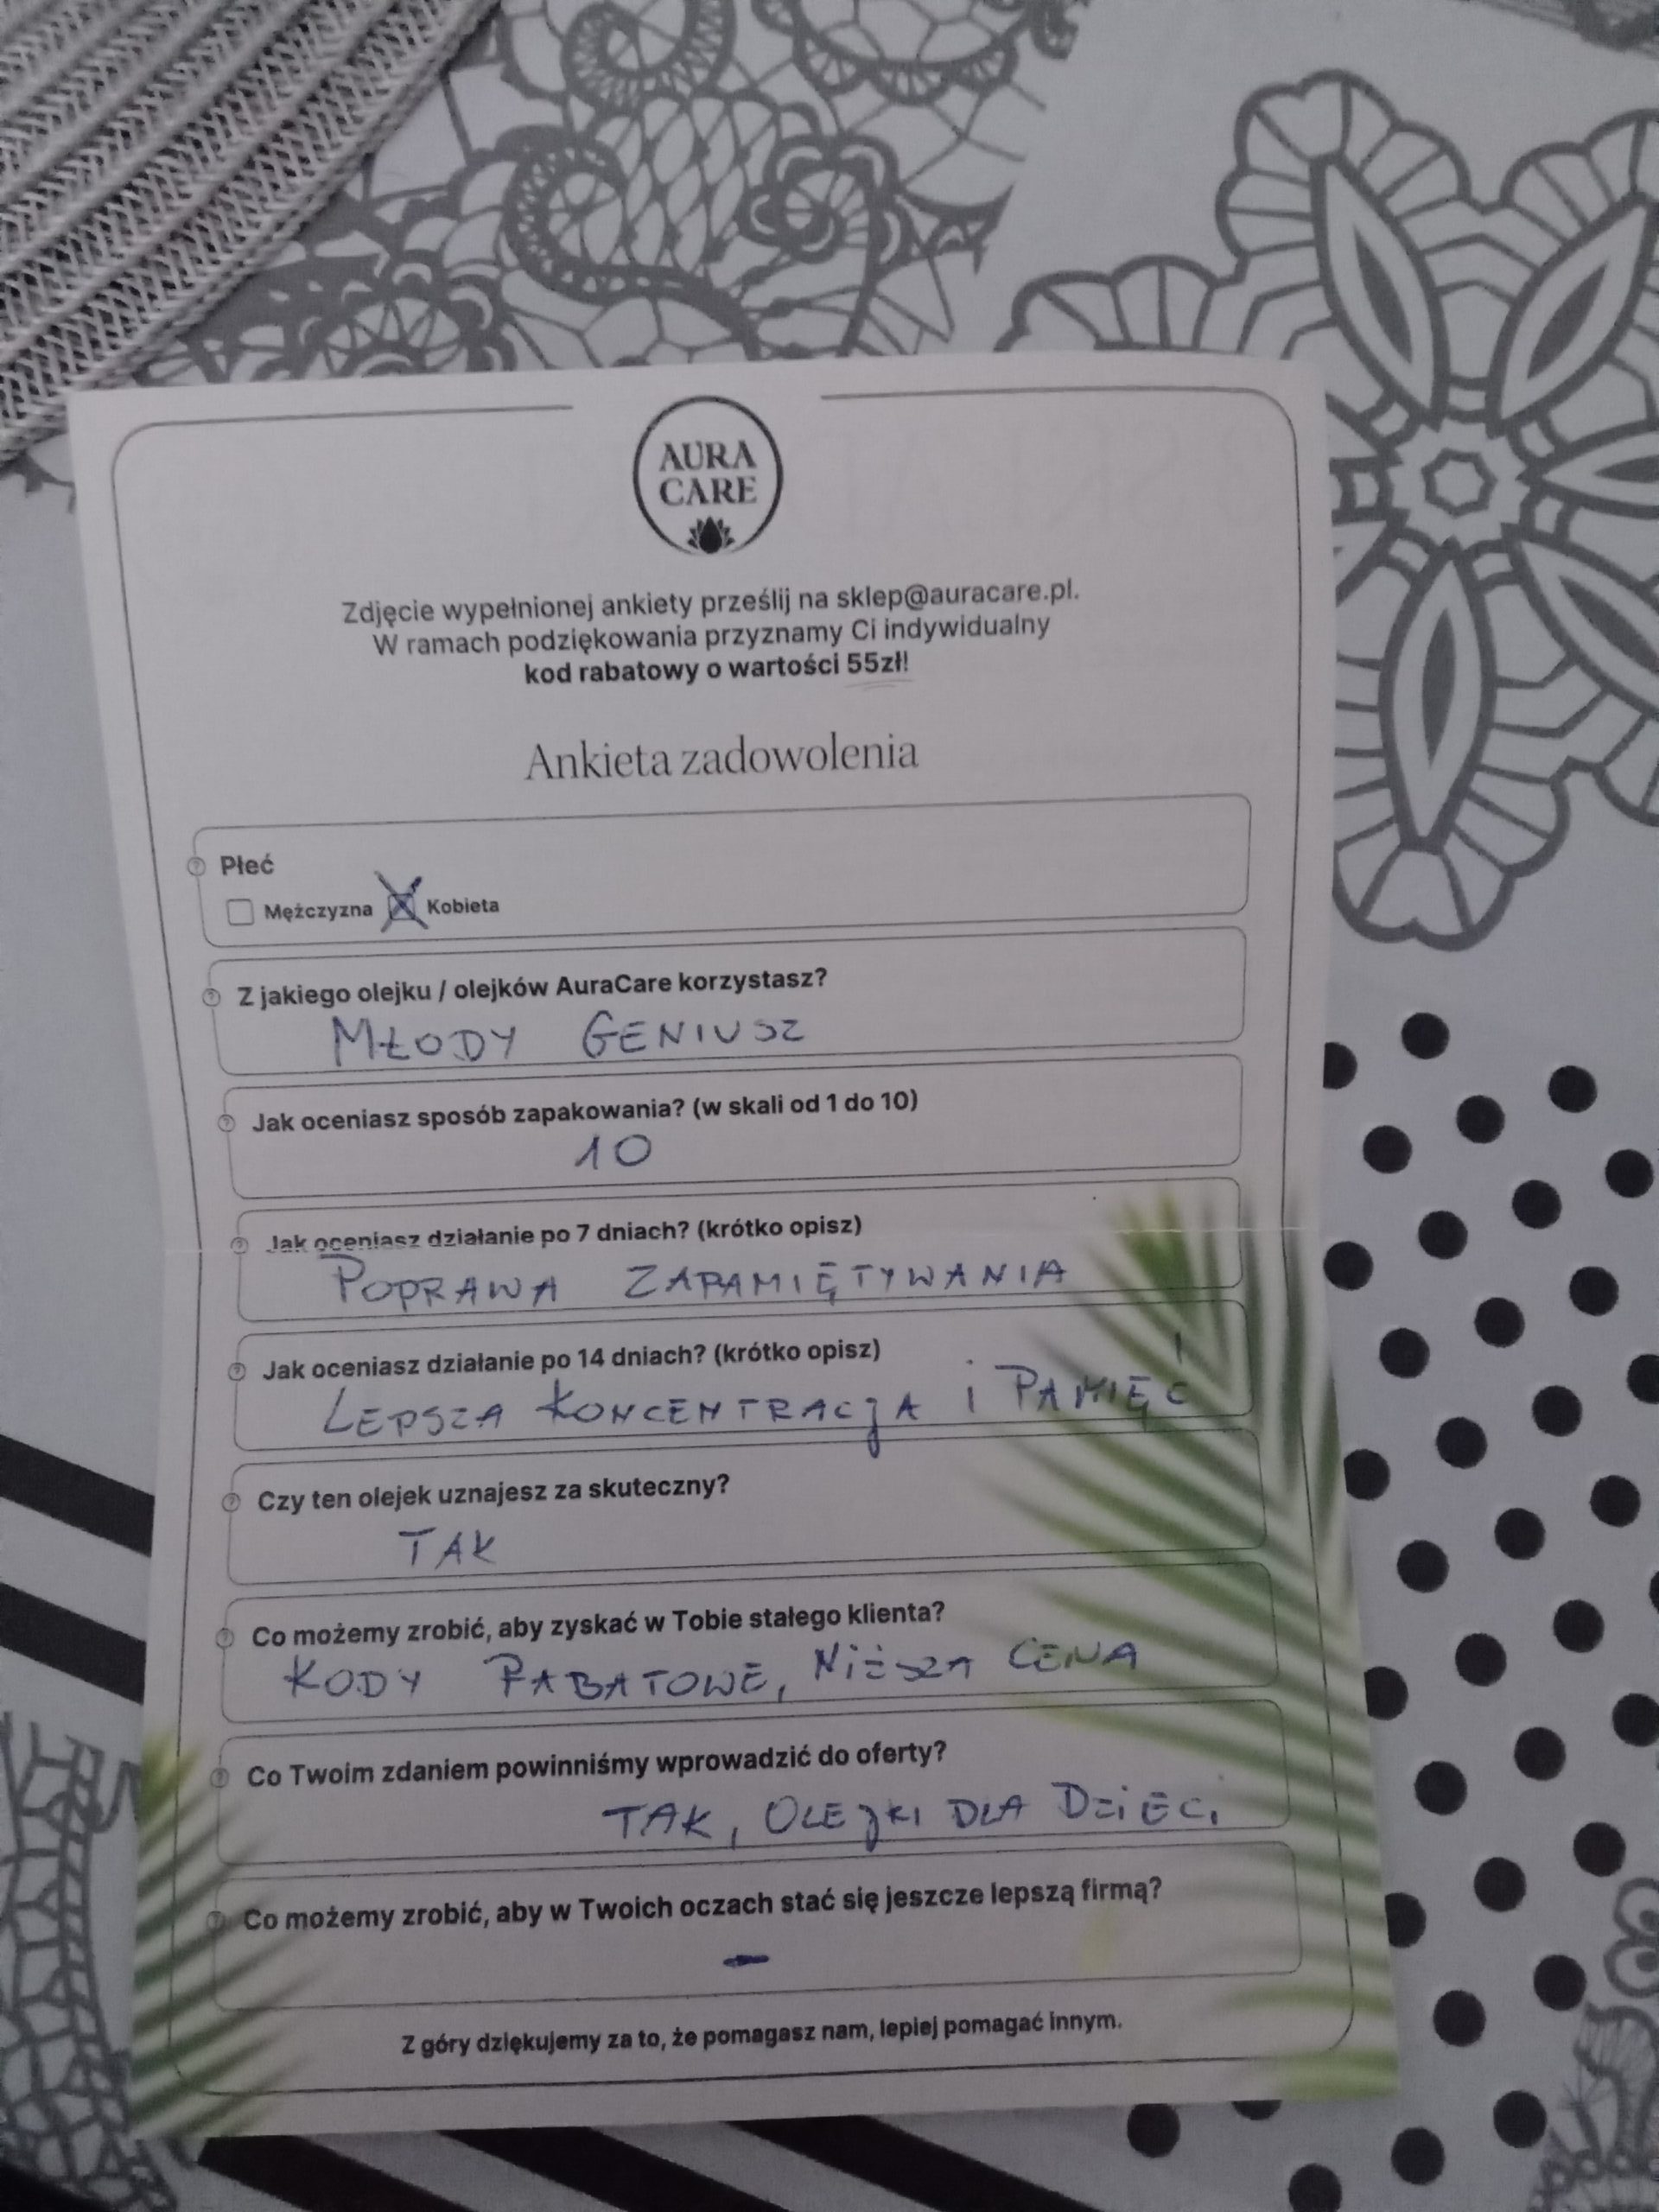 AURA
CARE
Zdjęcie wypełnionej ankiety prześlij na sklep@auracare.pl.
W ramach podziękowania przyznamy Ci indywidualny
kod rabatowy o wartości 55zł!
Ankieta zadowolenia
Płeć
Mężczyzna Kobieta
Z jakiego olejku / olejków AuraCare korzystasz?
MŁODY GENIUSZ
Jak oceniasz sposób zapakowania? (w skali od 1 do 10)
10
Jak oceniasz działanie po 7 dniach? (krótko opisz)
POPRAWA ZAPAMIĘTYWANIA
Jak oceniasz działanie po 14 dniach? (krótko opisz)
LEPSZA KONCENTRACJA i PAMIĘĆ
Czy ten olejek uznajesz za skuteczny?
TAK
Co możemy zrobić, aby zyskać w Tobie stałego klienta?
KODY RABATOWE, NiŻSZA CENA
Co Twoim zdaniem powinniśmy wprowadzić do oferty?
TAK, OLEJKI DLA DZiECi
Co możemy zrobić, aby w Twoich oczach stać się jeszcze lepszą firmą?
-
Z góry dziękujemy za to, że pomagasz nam, lepiej pomagać innym.